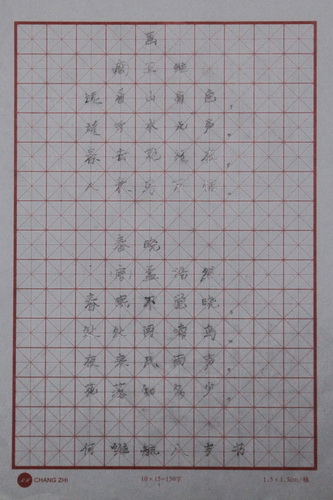 画
唐 王维
远看山有色，
近听水无声。
春去花还在，
人来鸟不惊。
春晓
唐 孟浩然
春眠不觉晓，
处处闻啼鸟。
夜来风雨声，
花落知多少。
何 航 八岁书
CHANG ZHI
10×15=150字
1.5×1.5cm/格